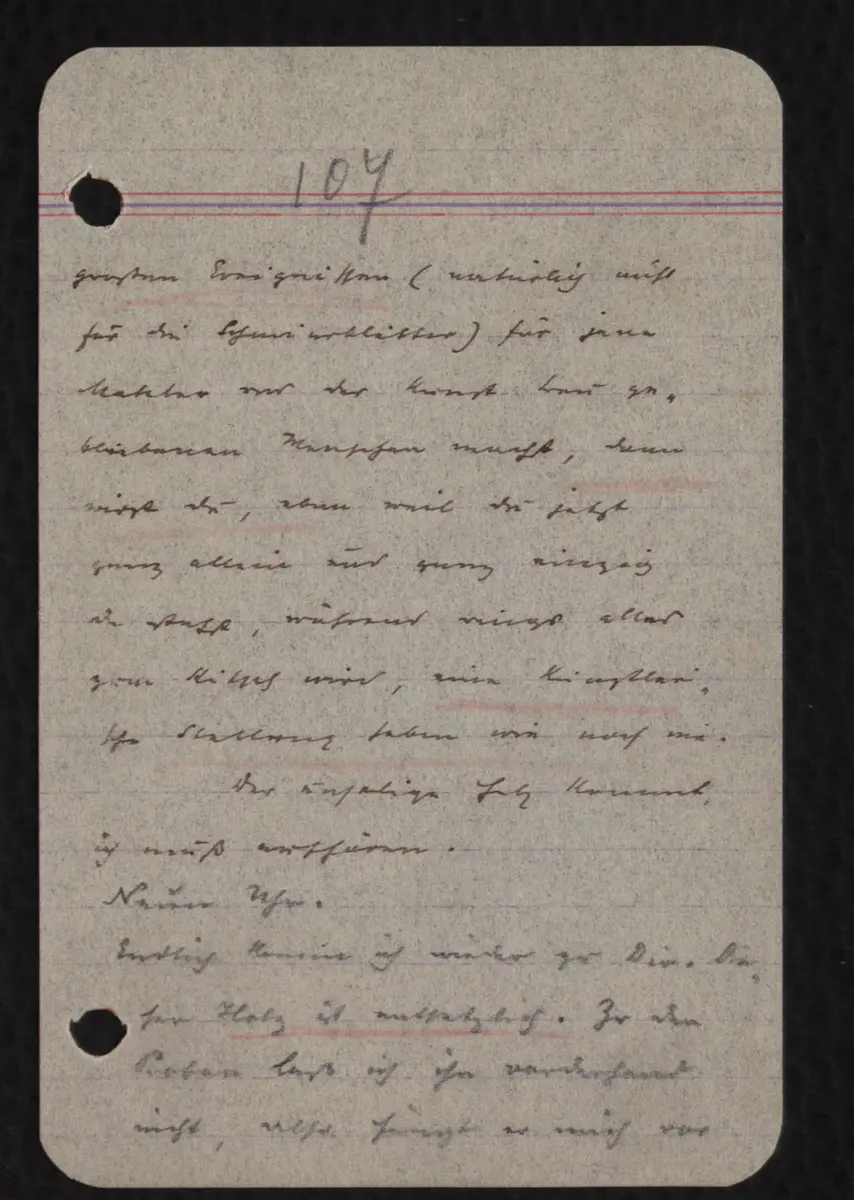 107
großen Ereignissen (natürlich nicht
für die Schmierblätter) für jene
Maler und der Kunst treu ge-
bliebenen Menschen macht, dann
wirst du, eben weil du jetzt
ganz allein und ganz einzig
da stehst, während rings alles
zum Kitsch wird, eine künstleri-
sche Stellung haben wie noch nie.
Der unselige Holz kommt,
ich muß aufhören.
Neun Uhr.
Endlich komme ich wieder zu Dir. Die-
ser Holz ist entsetzlich. Zu den
Proben laß ich ihn vorderhand
nicht, also fängt er mich vor